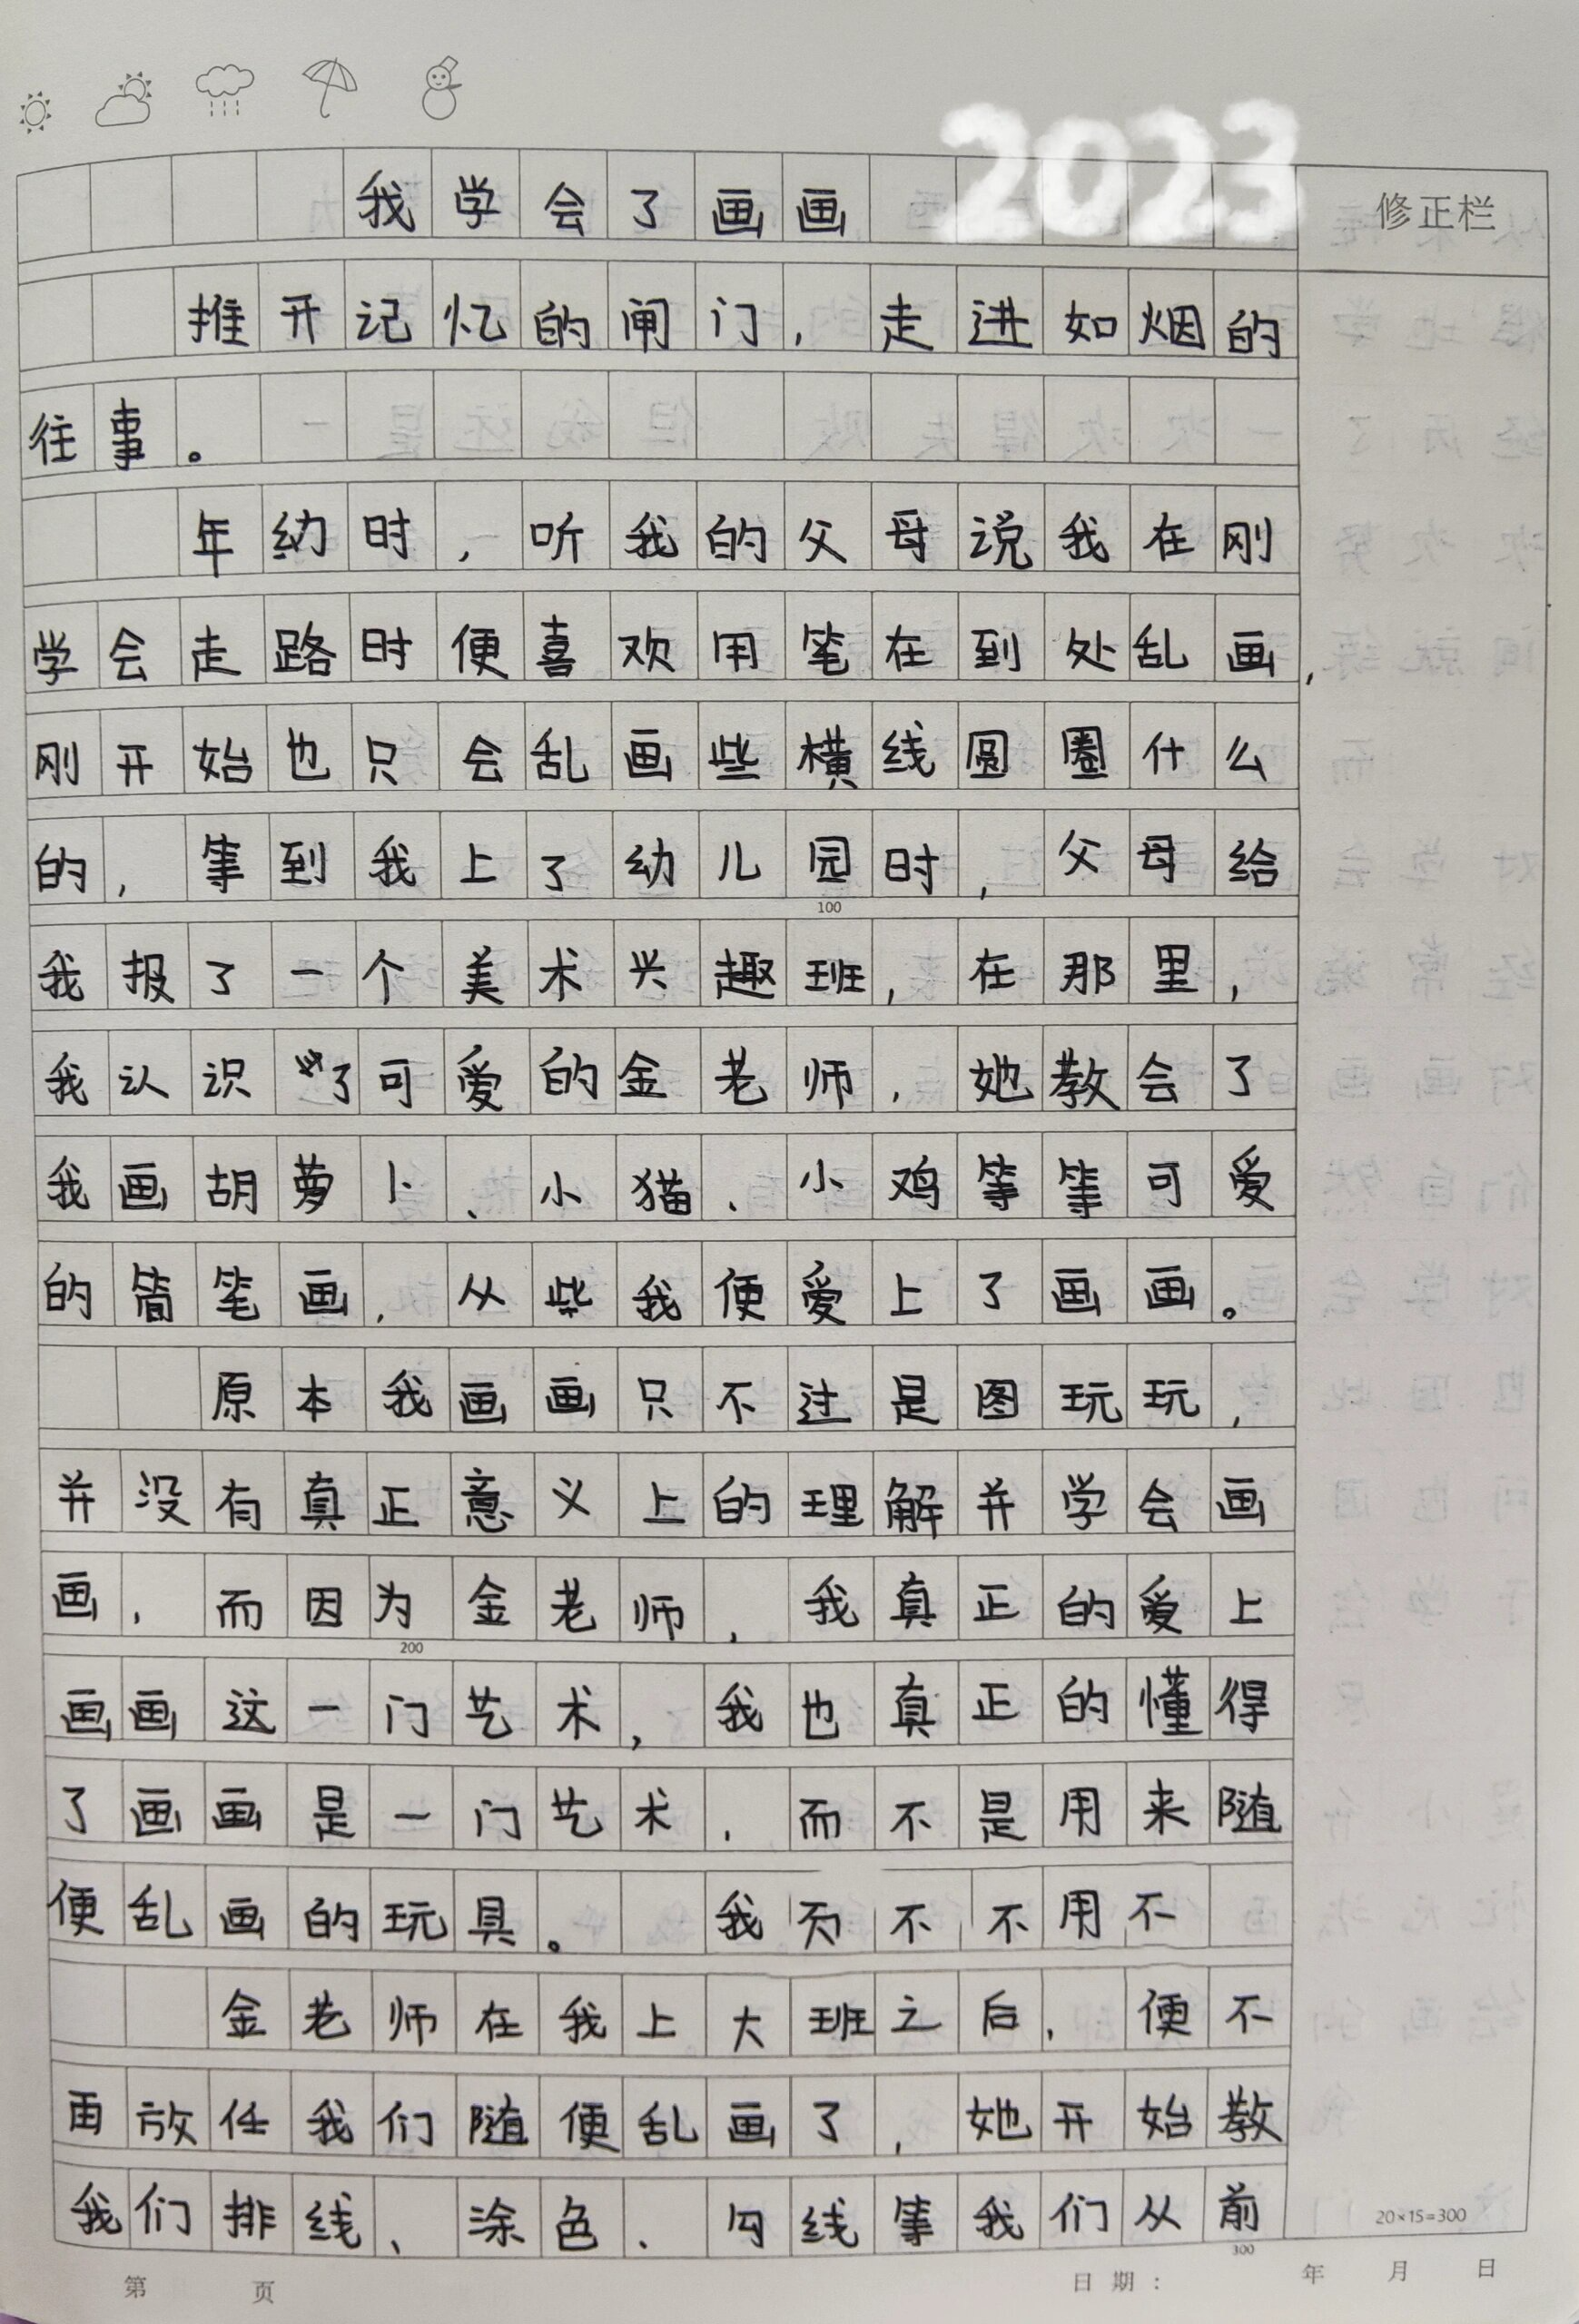 2023
我学会了画画
修正栏
推开记忆的闸门，走进如烟的
往事。
年幼时，听我的父母说我在刚
学会走路时便喜欢用笔在到处乱画，
刚开始也只会乱画些横线圆圈什么
的，等到我上了幼儿园时，父母给
100
我报了一个美术兴趣班，在那里，
我认识了可爱的金老师，她教会了
我画胡萝卜、小猫、小鸡等等可爱
的简笔画，从些我便爱上了画画。
原本我画画只不过是图玩玩，
并没有真正意义上的理解并学会画
画，而因为金老师，我真正的爱上
200
画画这一门艺术，我也真正的懂得
了画画是一门艺术，而不是用来随
便乱画的玩具。 我 不不用不
金老师在我上大班之后，便不
再放任我们随便乱画了，她开始教
我们排线、涂色、勾线等我们从前
20×15=300
300
第 页 日期： 年 月 日